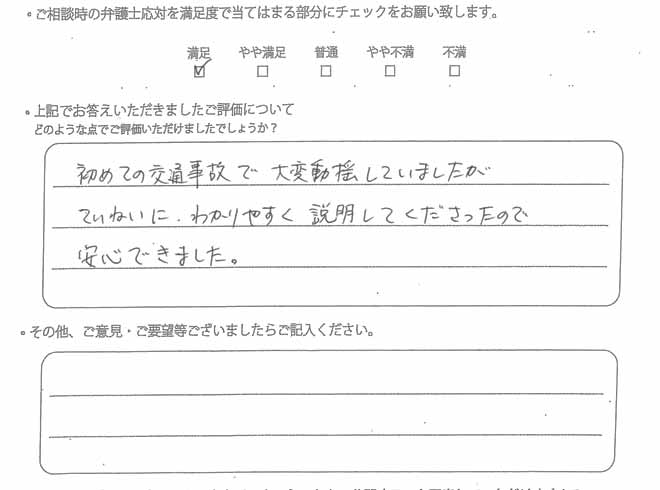 。ご相談時の弁護士応対を満足度で当てはまる部分にチェックをお願い致します。
満足 やや満足 普通 やや不満 不満
☑ □ □ □ □
。上記でお答えいただきましたご評価について
どのような点でご評価いただけましたでしょうか？
初めての交通事故で 大変動揺していましたが
ていねいに、わかりやすく 説明してくださったので
安心できました。
。その他、ご意見・ご要望等ございましたらご記入ください。